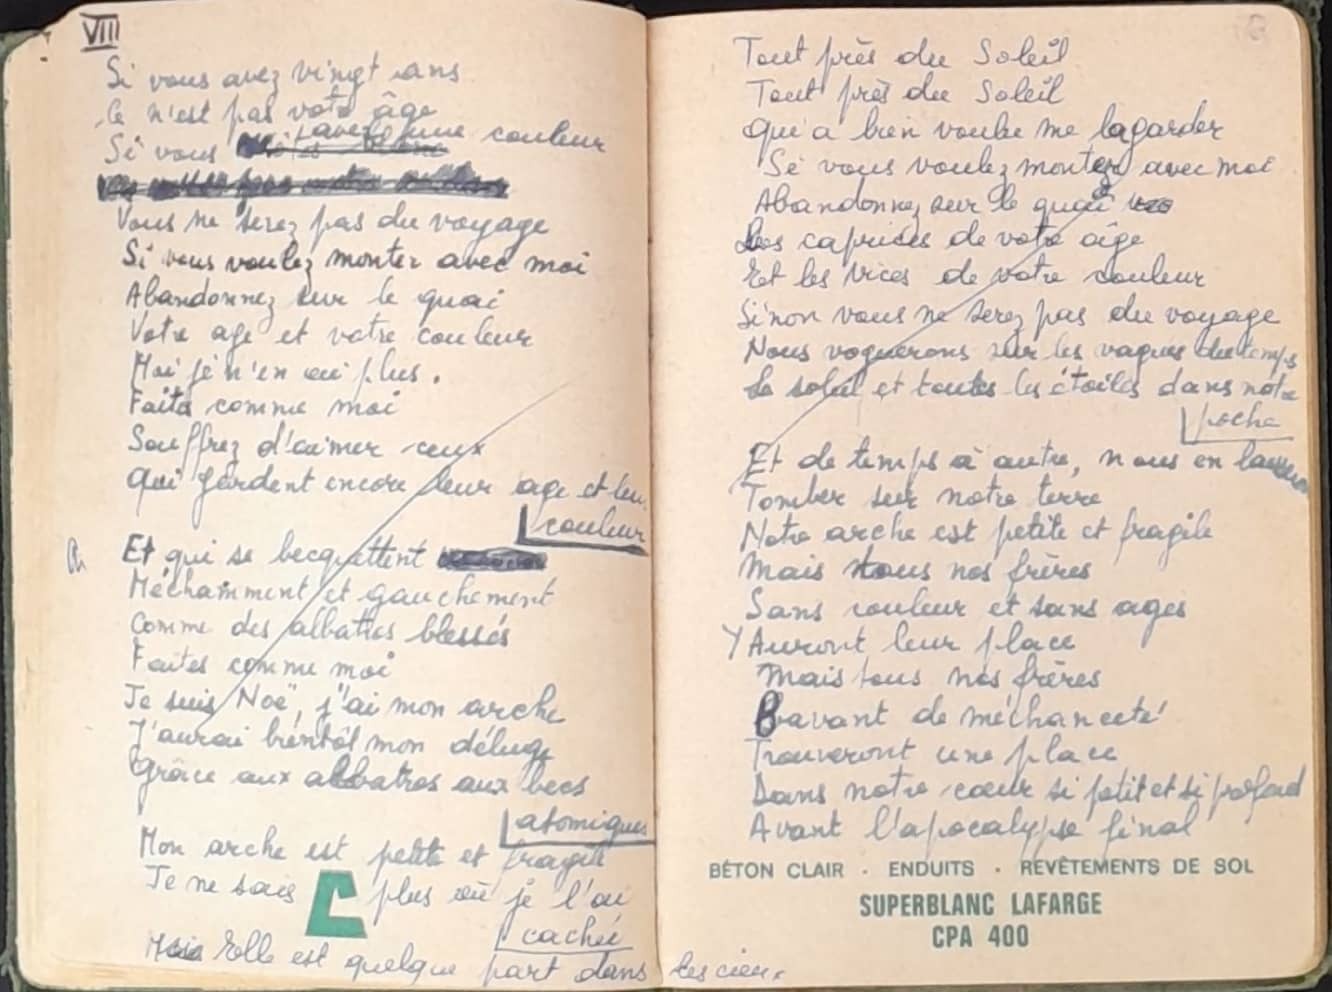 VIII
Si vous avez vingt ans
Ce n'est pas votre âge
Si vous avez une couleur
Vous ne serez pas du voyage
Si vous voulez monter avec moi
Abandonnez sur le quai
Votre age et votre couleur
Moi je n'en ai plus.
Faites comme moi
Souffrez d'aimer ceux
Qui gardent encore leur age et leur
couleur
Et qui se becquettent
Méchamment et gauchement
Comme des albatros blessés
Faites comme moi
Je suis Noë, j'ai mon arche
J'aurai bientôt mon déluge
Grâce aux albatros aux becs
atomiques
Mon arche est petite et fragile
Je ne sais plus où je l'ai
cachée
Mais Elle est quelque part dans les cieux
Tout près du Soleil
Tout près du Soleil
Qui a bien voulu me la garder
Si vous voulez monter avec moi
Abandonnez sur le quai
Les caprices de votre age
Et les vices de votre couleur
Si non vous ne serez pas du voyage
Nous voguerons sur les vagues du temps
Le soleil et toutes les étoiles dans notre
poche
Et de temps à autre, nous en
Tomber sur notre terre
Notre arche est petite et fragile
Mais tous nos frères
Sans couleur et sans ages
Y Auront leur place
Mais tous nos frères
Bavant de méchanceté
Trouveront une place
Dans notre cœur si petit et si profond
Avant l'apocalypse final
BÉTON CLAIR · ENDUITS · REVÊTEMENTS DE SOL
SUPERBLANC LAFARGE
CPA 400